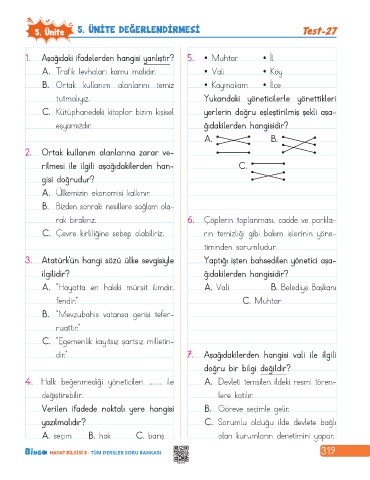 5. Ünite
5. ÜNİTE DEĞERLENDİRMESİ
Test-27
1. Aşağıdaki ifadelerden hangisi yanlıştır?
A. Trafik levhaları kamu malıdır.
B. Ortak kullanım alanlarını temiz
tutmalıyız.
C. Kütüphanedeki kitaplar bizim kişisel
eşyamızdır.
2. Ortak kullanım alanlarına zarar ve-
rilmesi ile ilgili aşağıdakilerden han-
gisi doğrudur?
A. Ülkemizin ekonomisi kalkınır.
B. Bizden sonraki nesillere sağlam ola-
rak bırakırız.
C. Çevre kirliliğine sebep olabiliriz.
3. Atatürk'ün hangi sözü ülke sevgisiyle
ilgilidir?
A. "Hayatta en hakiki mürşit ilimdir,
fendir."
B. "Mevzubahis vatansa gerisi tefer-
ruattır."
C. "Egemenlik kayıtsız şartsız milletin-
dir."
4. Halk beğenmediği yöneticileri ........ ile
değiştirebilir.
Verilen ifadede noktalı yere hangisi
yazılmalıdır?
A. seçim B. hak C. barış
5. • Muhtar • İl
• Vali • Köy
• Kaymakam • İlçe
Yukarıdaki yöneticilerle yönettikleri
yerlerin doğru eşleştirilmiş şekli aşa-
ğıdakilerden hangisidir?
A. B.
C.
6. Çöplerin toplanması, cadde ve parkla-
rın temizliği gibi bakım işlerinin yöne-
timinden sorumludur.
Yaptığı işten bahsedilen yönetici aşa-
ğıdakilerden hangisidir?
A. Vali B. Belediye Başkanı
C. Muhtar
7. Aşağıdakilerden hangisi vali ile ilgili
doğru bir bilgi değildir?
A. Devleti temsilen ildeki resmi tören-
lere katılır.
B. Göreve seçimle gelir.
C. Sorumlu olduğu ilde devlete bağlı
olan kurumların denetimini yapar.
BinGo HAYAT BİLGİSİ 3 - TÜM DERSLER SORU BANKASI
319